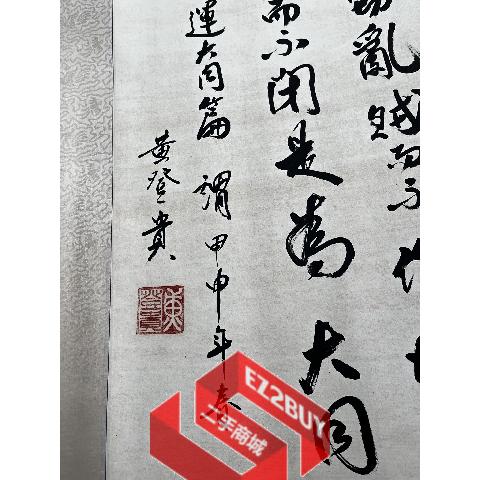 亂賊而不
而不閉是為大同
運大同篇 謂 甲申年春
黃登貴
EZ2BUY
二手商城